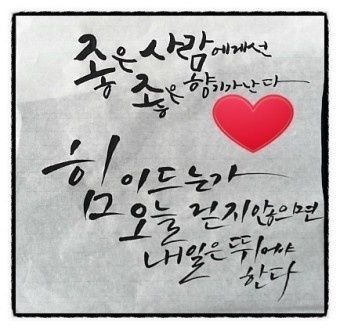 좋은 사람에게선
좋은 향기가 난다
힘이 드는가
오늘 걷지 않으면
내일은 뛰어야
한다